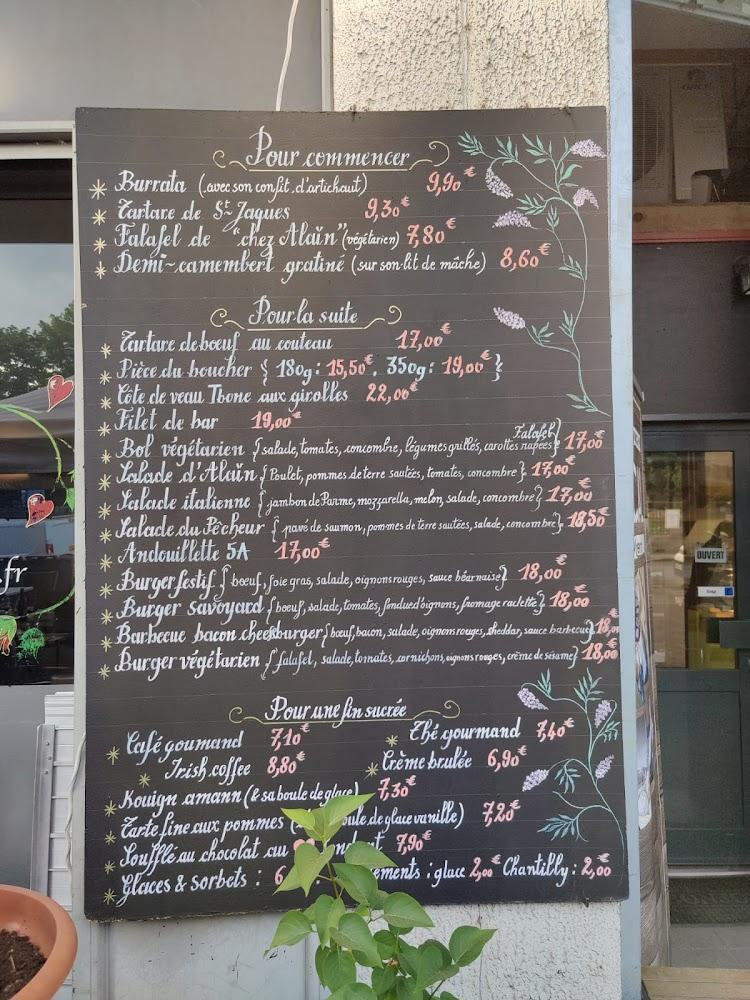 Pour commencer
Burrata (avec son confit d'artichaut) 9,90€
Tartare de St-Jaques 9,30€
Falafel de "chez Alaïn" (végétarien) 7,80€
Demi-camembert gratiné (sur son lit de mâche) 8,60€
Pour la suite
Tartare de bœuf au couteau 17,00€
Pièce du boucher { 180g : 15,50€. 350g : 19,00€ }
Côte de veau Tbone aux girolles 22,00€
Filet de bar 19,00€
Falafel
Bol végétarien { salade, tomates, concombre, légumes grillés, carottes rapées } 17,00€
Salade d'Alaïn { Poulet, pommes de terre sautées, tomates, concombre } 17,00€
Salade italienne { jambon de Parme, mozzarella, melon, salade, concombre } 17,00€
Salade du Pêcheur { pavé de saumon, pommes de terre sautées, salade, concombre } 18,50€
Andouillette 5A 17,00€
Burger festif { bœuf, foie gras, salade, oignons rouges, sauce béarnaise } 18,00€
Burger savoyard { bœuf, salade, tomates, fondue d'oignons, fromage raclette } 18,00€
Barbecue bacon cheesburger { bœuf, bacon, salade, oignons rouges, cheddar, sauce barbecue } 18,00
Burger végétarien { falafel, salade, tomates, cornichons, oignons rouges, crème de sésame } 18,00€
Pour une fin sucrée
Café goumand 7,10€ Thé gourmand 7,40€
Irish coffee 8,80€ Crème brulée 6,90€
Kouign amann (& sa boule de glace) 7,30€
Tarte fine aux pommes ( boule de glace vanille) 7,20€
Soufflé au chocolat au 7,90€
Glaces & sorbets : 6 ements : glace 2,00€ Chantilly : 2,00€
.fr
OUVERT